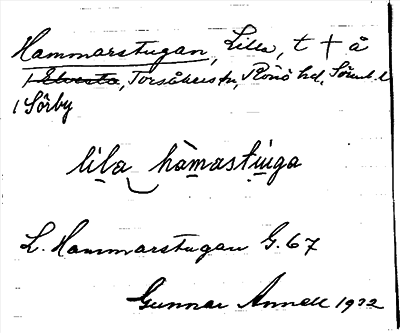 Hammarstugan, Lilla, t † å
/ Elvesta, Torsåkers sn, Rönö hd, Söderml. l
/ Sörby
lila hàmastuga
L. Hammarstugan G. 67
Gunnar Annell 1932